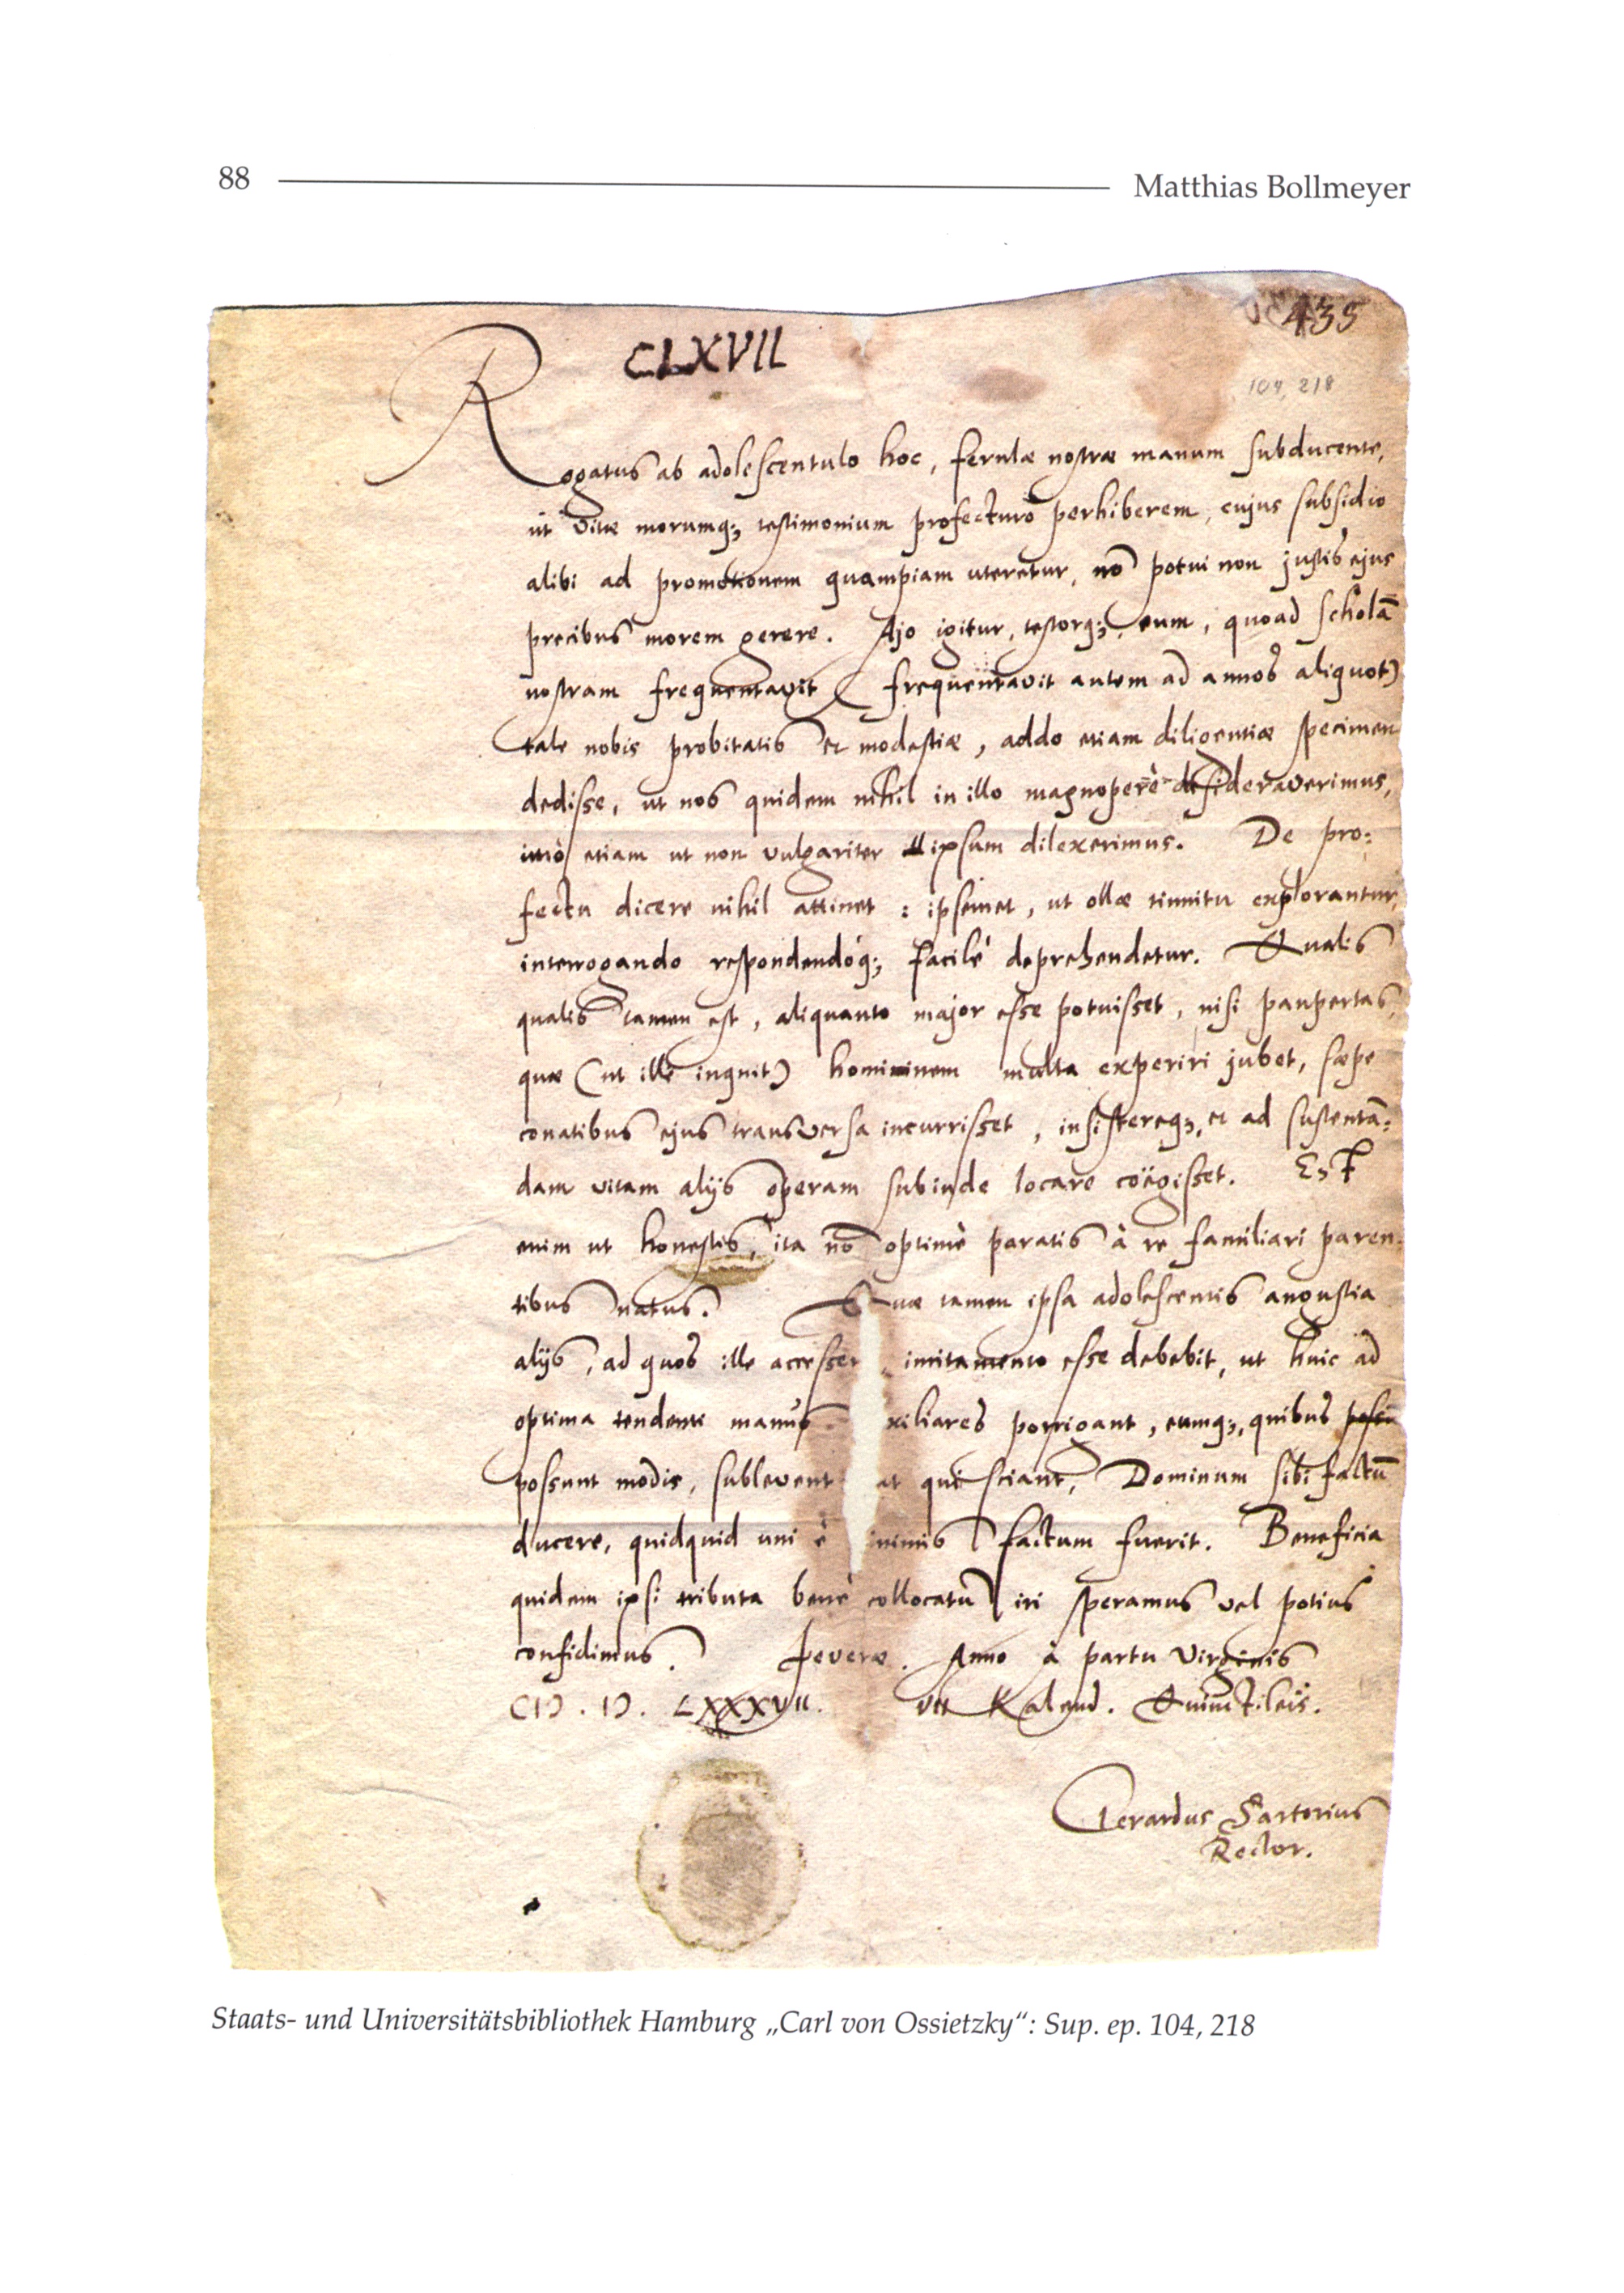 88 Matthias Bollmeyer
CLXVII
435
104, 218
Rogatus ab adolescentulo hoc, ferulæ nostræ manum subducente,
ut vitæ morumq; testimonium profecturo perhiberem, cujus subsidio
alibi ad promotionem quampiam uteretur, nō potui non justis ejus
precibus morem gerere. Ajo igitur, testorq;, eum, quoad scholā
nostram frequentavit (frequentavit autem ad annos aliquot)
tale nobis probitatis et modestiæ, addo etiam diligentiæ specimen
dedisse, ut nos quidem nihil in illo magnoperè desideraverimus,
imò etiam ut non vulgariter ipsum dilexerimus. De pro:
fectu dicere nihil attinet : ipsemet, ut ollæ tinnitu explorantur,
interrogando respondendóq; facilè deprehendetur. Qualis
qualis tamen est, aliquanto major esse potuisset, nisi paupertas,
quæ (ut ille inquit) hominem multa experiri jubet, sæpe
conatibus ejus transversa incurrisset, insistereq;, et ad sustentā:
dam vitam alijs operam subinde locare coëgisset. Est
enim ut honestis, ita nō optimè paratis à re familiari paren:
tibus natus. Quæ tamen ipsa adolescentis angustia
alijs, ad quos ille accesser, imitamento esse debebit, ut huic ad
optima tendenti manus xiliares porrigant, eumq;, quibus
possunt modis, sublevent at qui sciant, Dominum sibi factū
ducere, quidquid uni è inimis factum fuerit. Beneficia
quidem ipsi tributa benè collocatū iri speramus vel potius
confidimus. Jeveræ. Anno à partu Virginis
CIↃ. IↃ. LXXXVII. VII Kalend. Quinctileis.
Gerardus Sartorius
Rector.
Staats- und Universitätsbibliothek Hamburg „Carl von Ossietzky“: Sup. ep. 104, 218